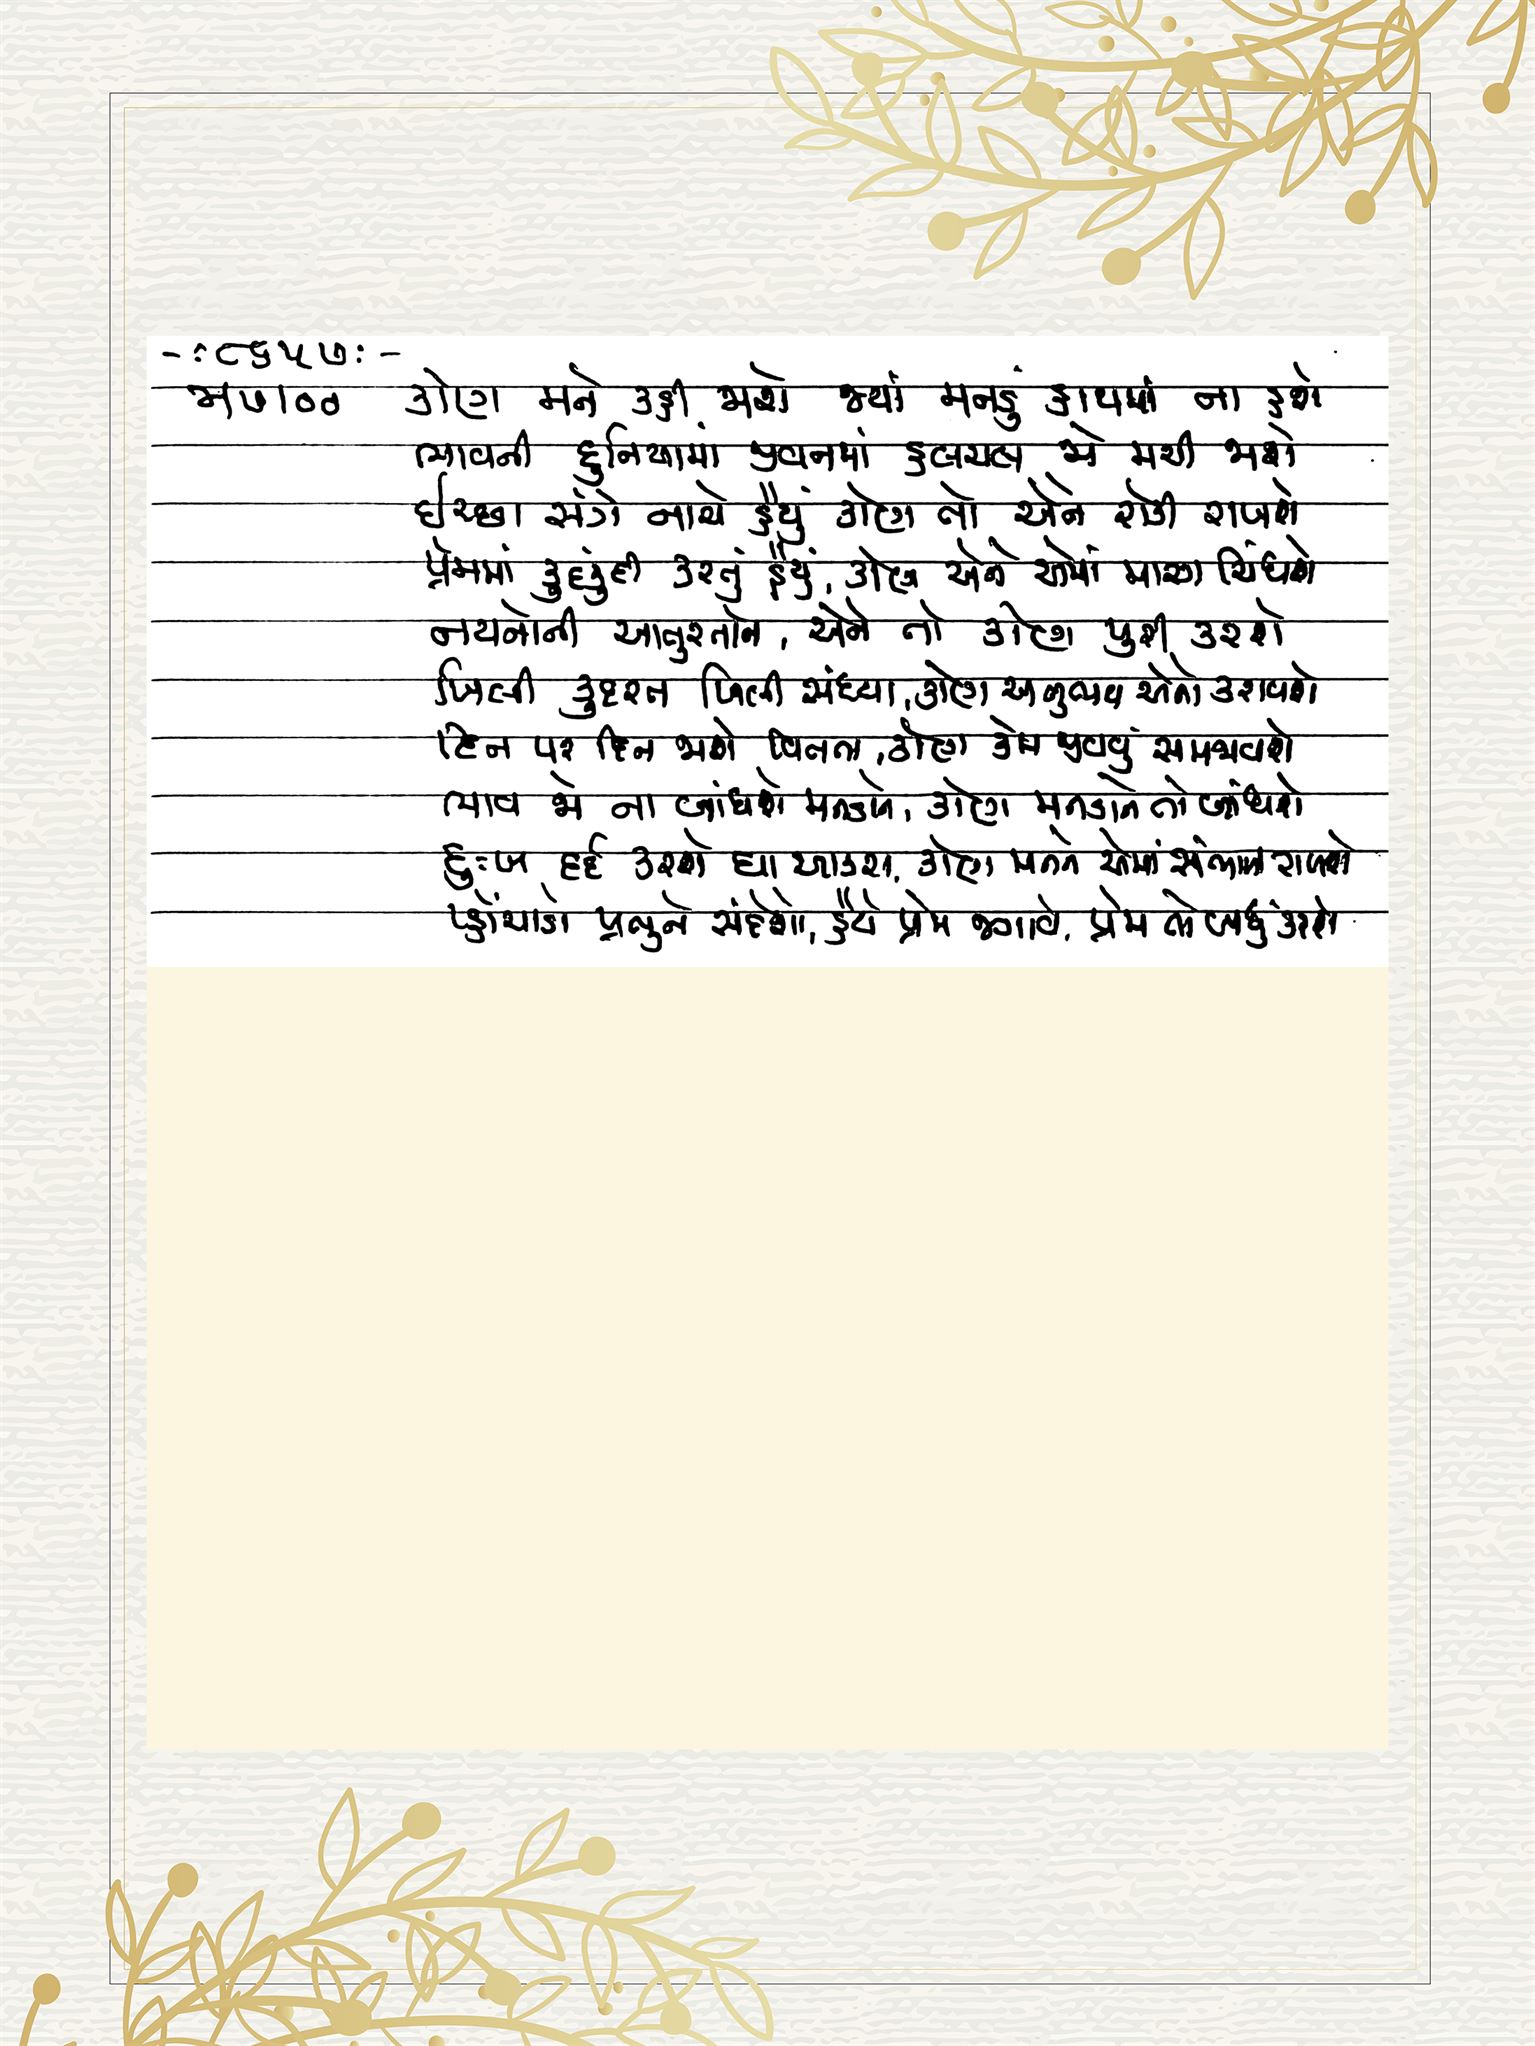 -: ૮૬૫૭ : -
કોણ મને કહી જાશે જ્યાં મનડું હાથમાં ના હશે
ભાવની દુનિયામાં જીવનમાં હલચલ જો મચી જાશે
ઈચ્છા સંગે નાચે હૈયું કોણ તો એને રોકી રાખશે
પ્રેમમાં કુદંકુદી કરતું હૈયું, કોણ એને એમાં માર્ગ ચિંધશે
નયનોની આતુરતાને, એને તો કોણ પુરી કરશે
ખિલી કુદરત ખિલી સંધ્યા, કોણ અનુભવ એનો કરાવશે
દિન પર દિન જાશે વિતતા, કોણ કેમ જીવવું સમજાવશે
ભાવ જો ના બાંધશે મનડાને, કોણ મનડાને તો બાંધશે
દુઃખ દર્દ કરશે ઘા આકરા, કોણ મનને એમાં સંભાળ રાખશે
પ્હોંચાડો પ્રભુને સંદેશો, હૈયે પ્રેમ જગાવે, પ્રેમ તો બધું કરશે